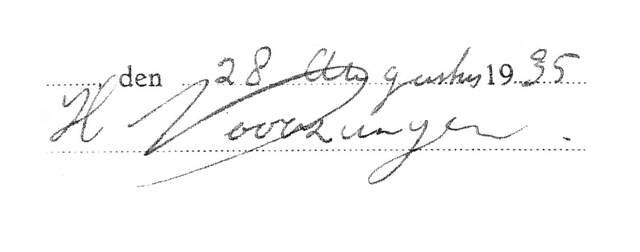 den 28 Augustus 1935
H Voorzanger.